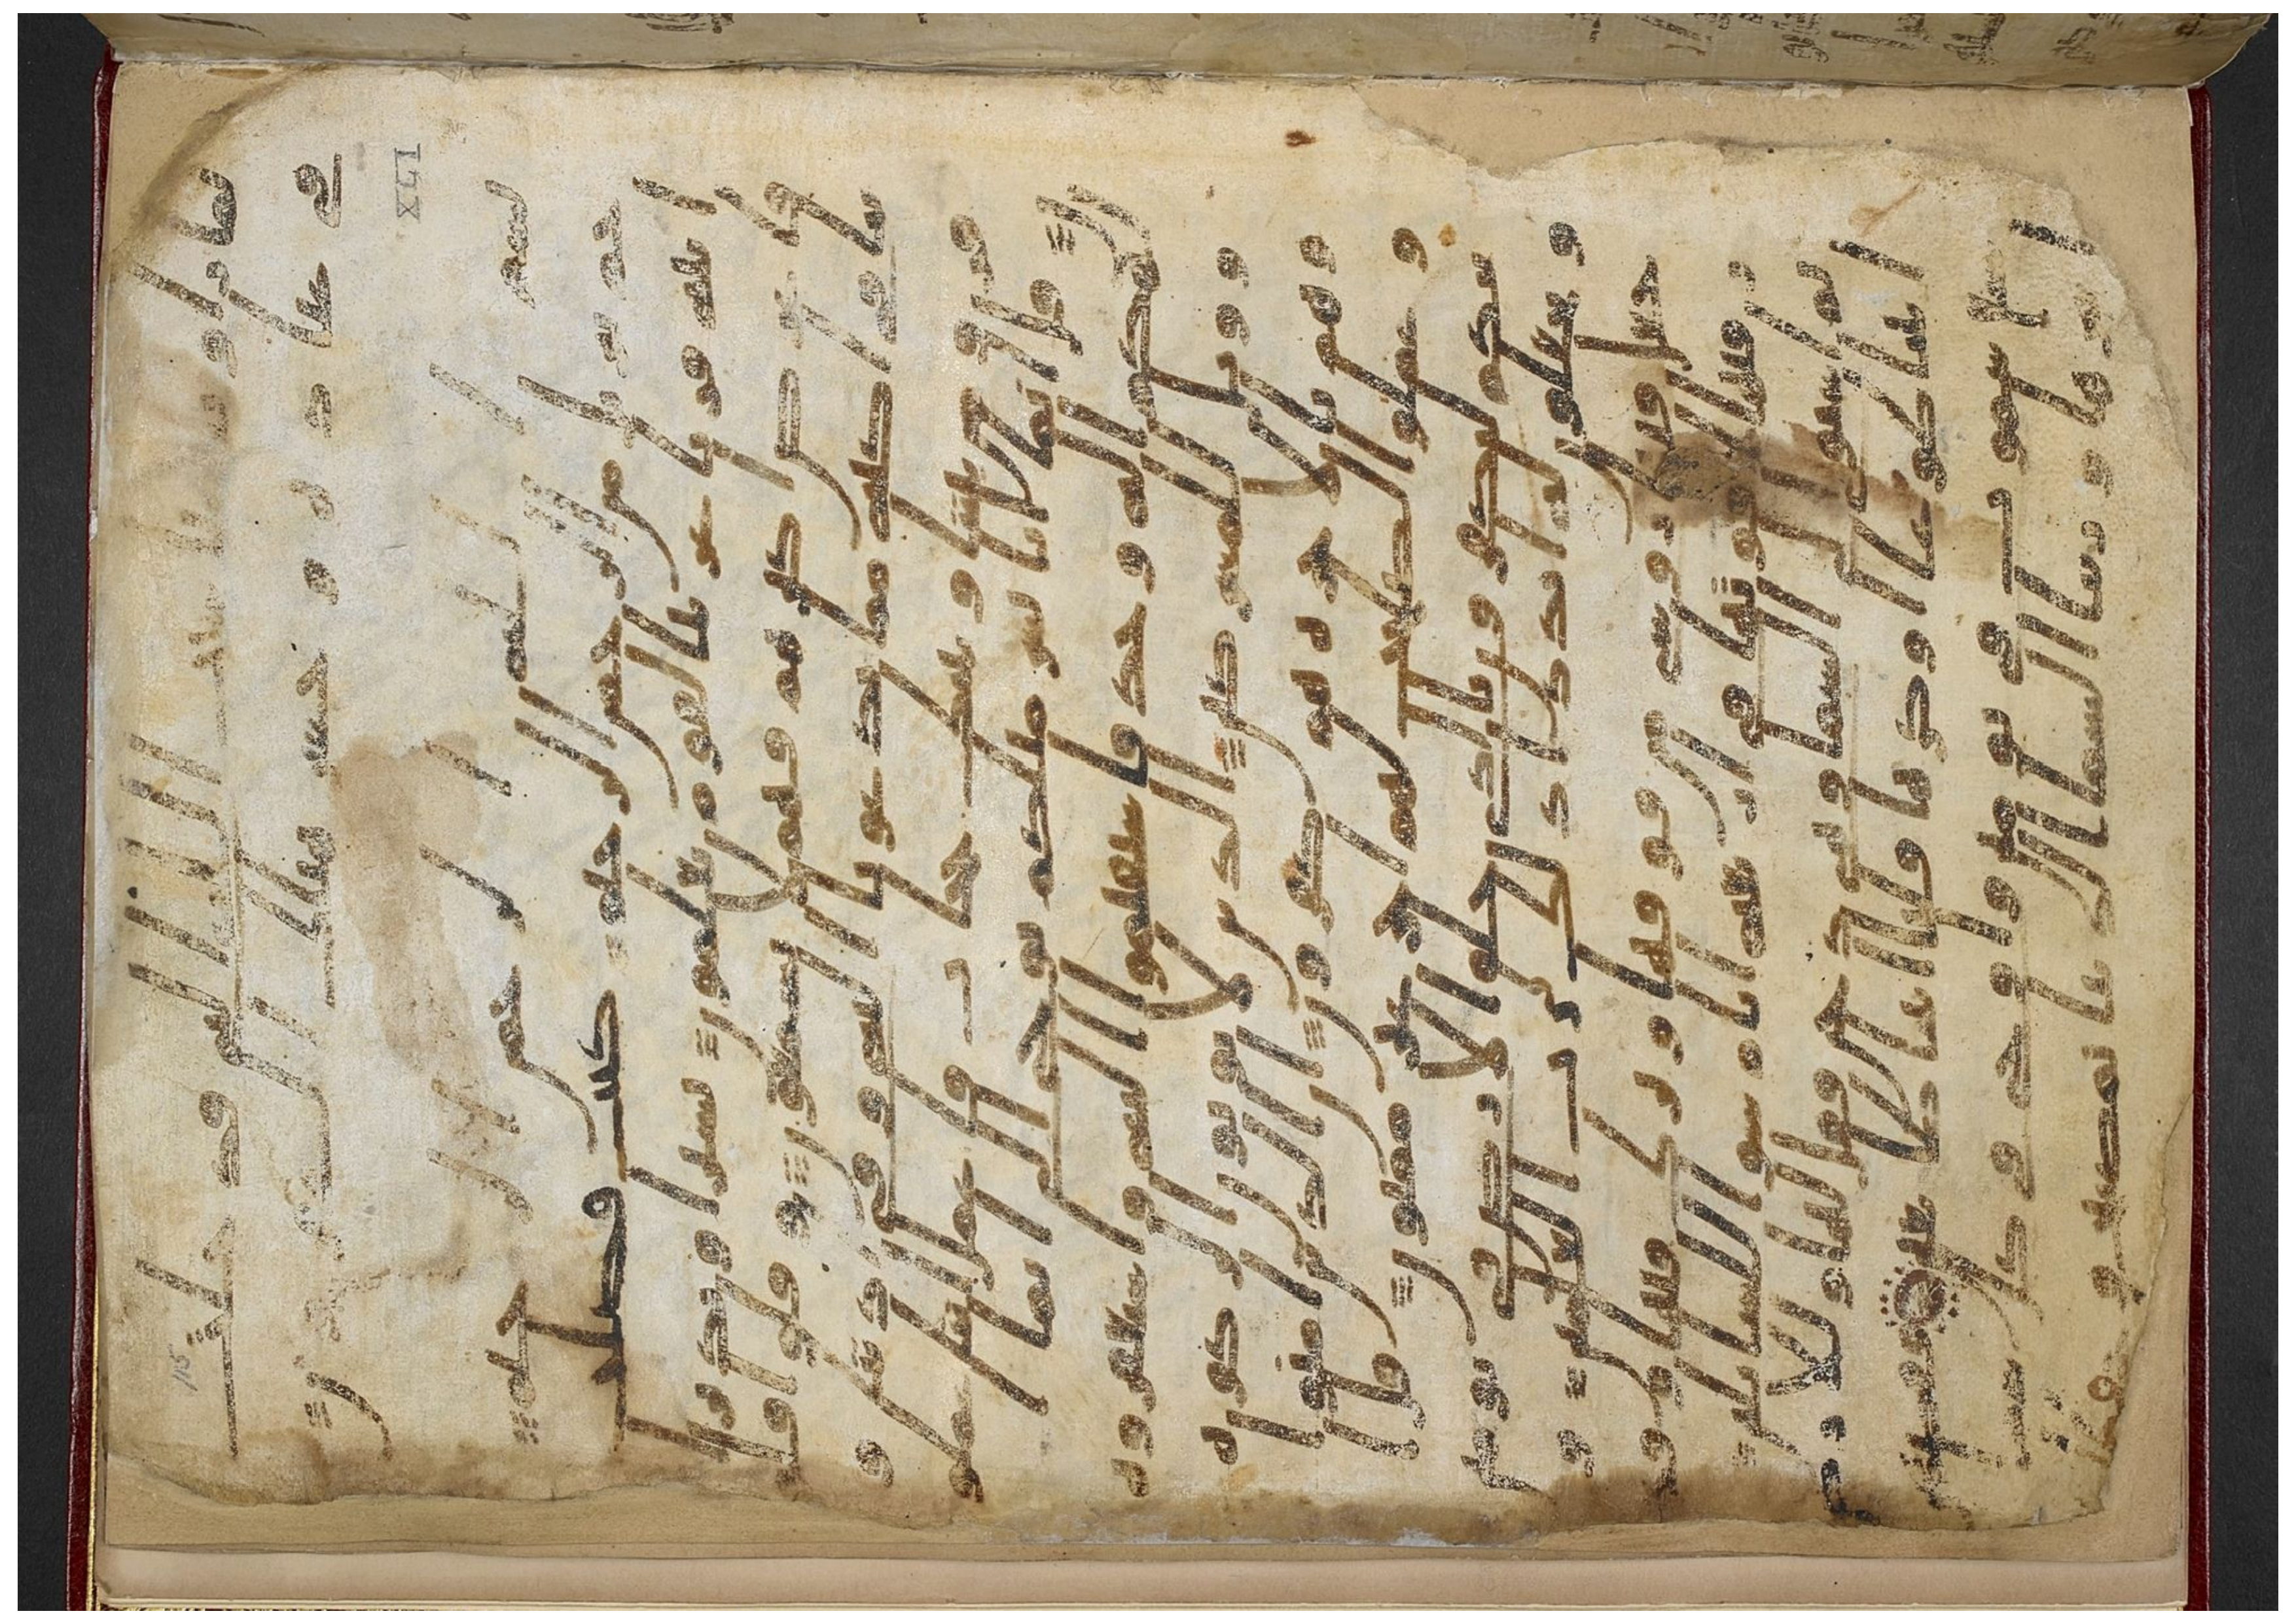 لما راوا باسنا سنت الله التي قد خلت
في عباده وخسر هنالك الكفرون
XLI
بسم الله الرحمن الرحيم
حم تنزيل من الرحمن الرحيم كتب فصلت
ايته قرنا عربيا لقوم يعلمون بشيرا ونذيرا
فاعرض اكثرهم فهم لا يسمعون وقالوا
قلوبنا في اكنه مما تدعونا اليه وفي اذننا و
قر ومن بيننا وبينك حجاب فاعمل اننا عملو
ن قل انما انا بشر مثلكم يوحى الي انما ا
لهكم اله وحد فاستقيموا اليه واستغفروه
وويل للمشركين الذين لا يوتون الزكوه
وهم بالاخره هم كفرون ان الذين امنوا
وعملوا الصلحت لهم اجر غير ممنون قل ا
ينكم لتكفرون بالذي خلق الارض في يومين
وتجعلون له اندادا ذلك رب العلمين و
جعل فيها روسي من فوقها وبرك فيها وقد
ر فيها اقوتها في اربعه ايام سوا للسايلين
ثم استوى الى السما وهي دخن فقال لها وللارض
ايتيا طوعا او كرها قالتا اتينا طايعين فقضيهن
سبع سموت في يومين واوحى في كل سما
امرها وزينا السما الدنيا بمصبيح و
115